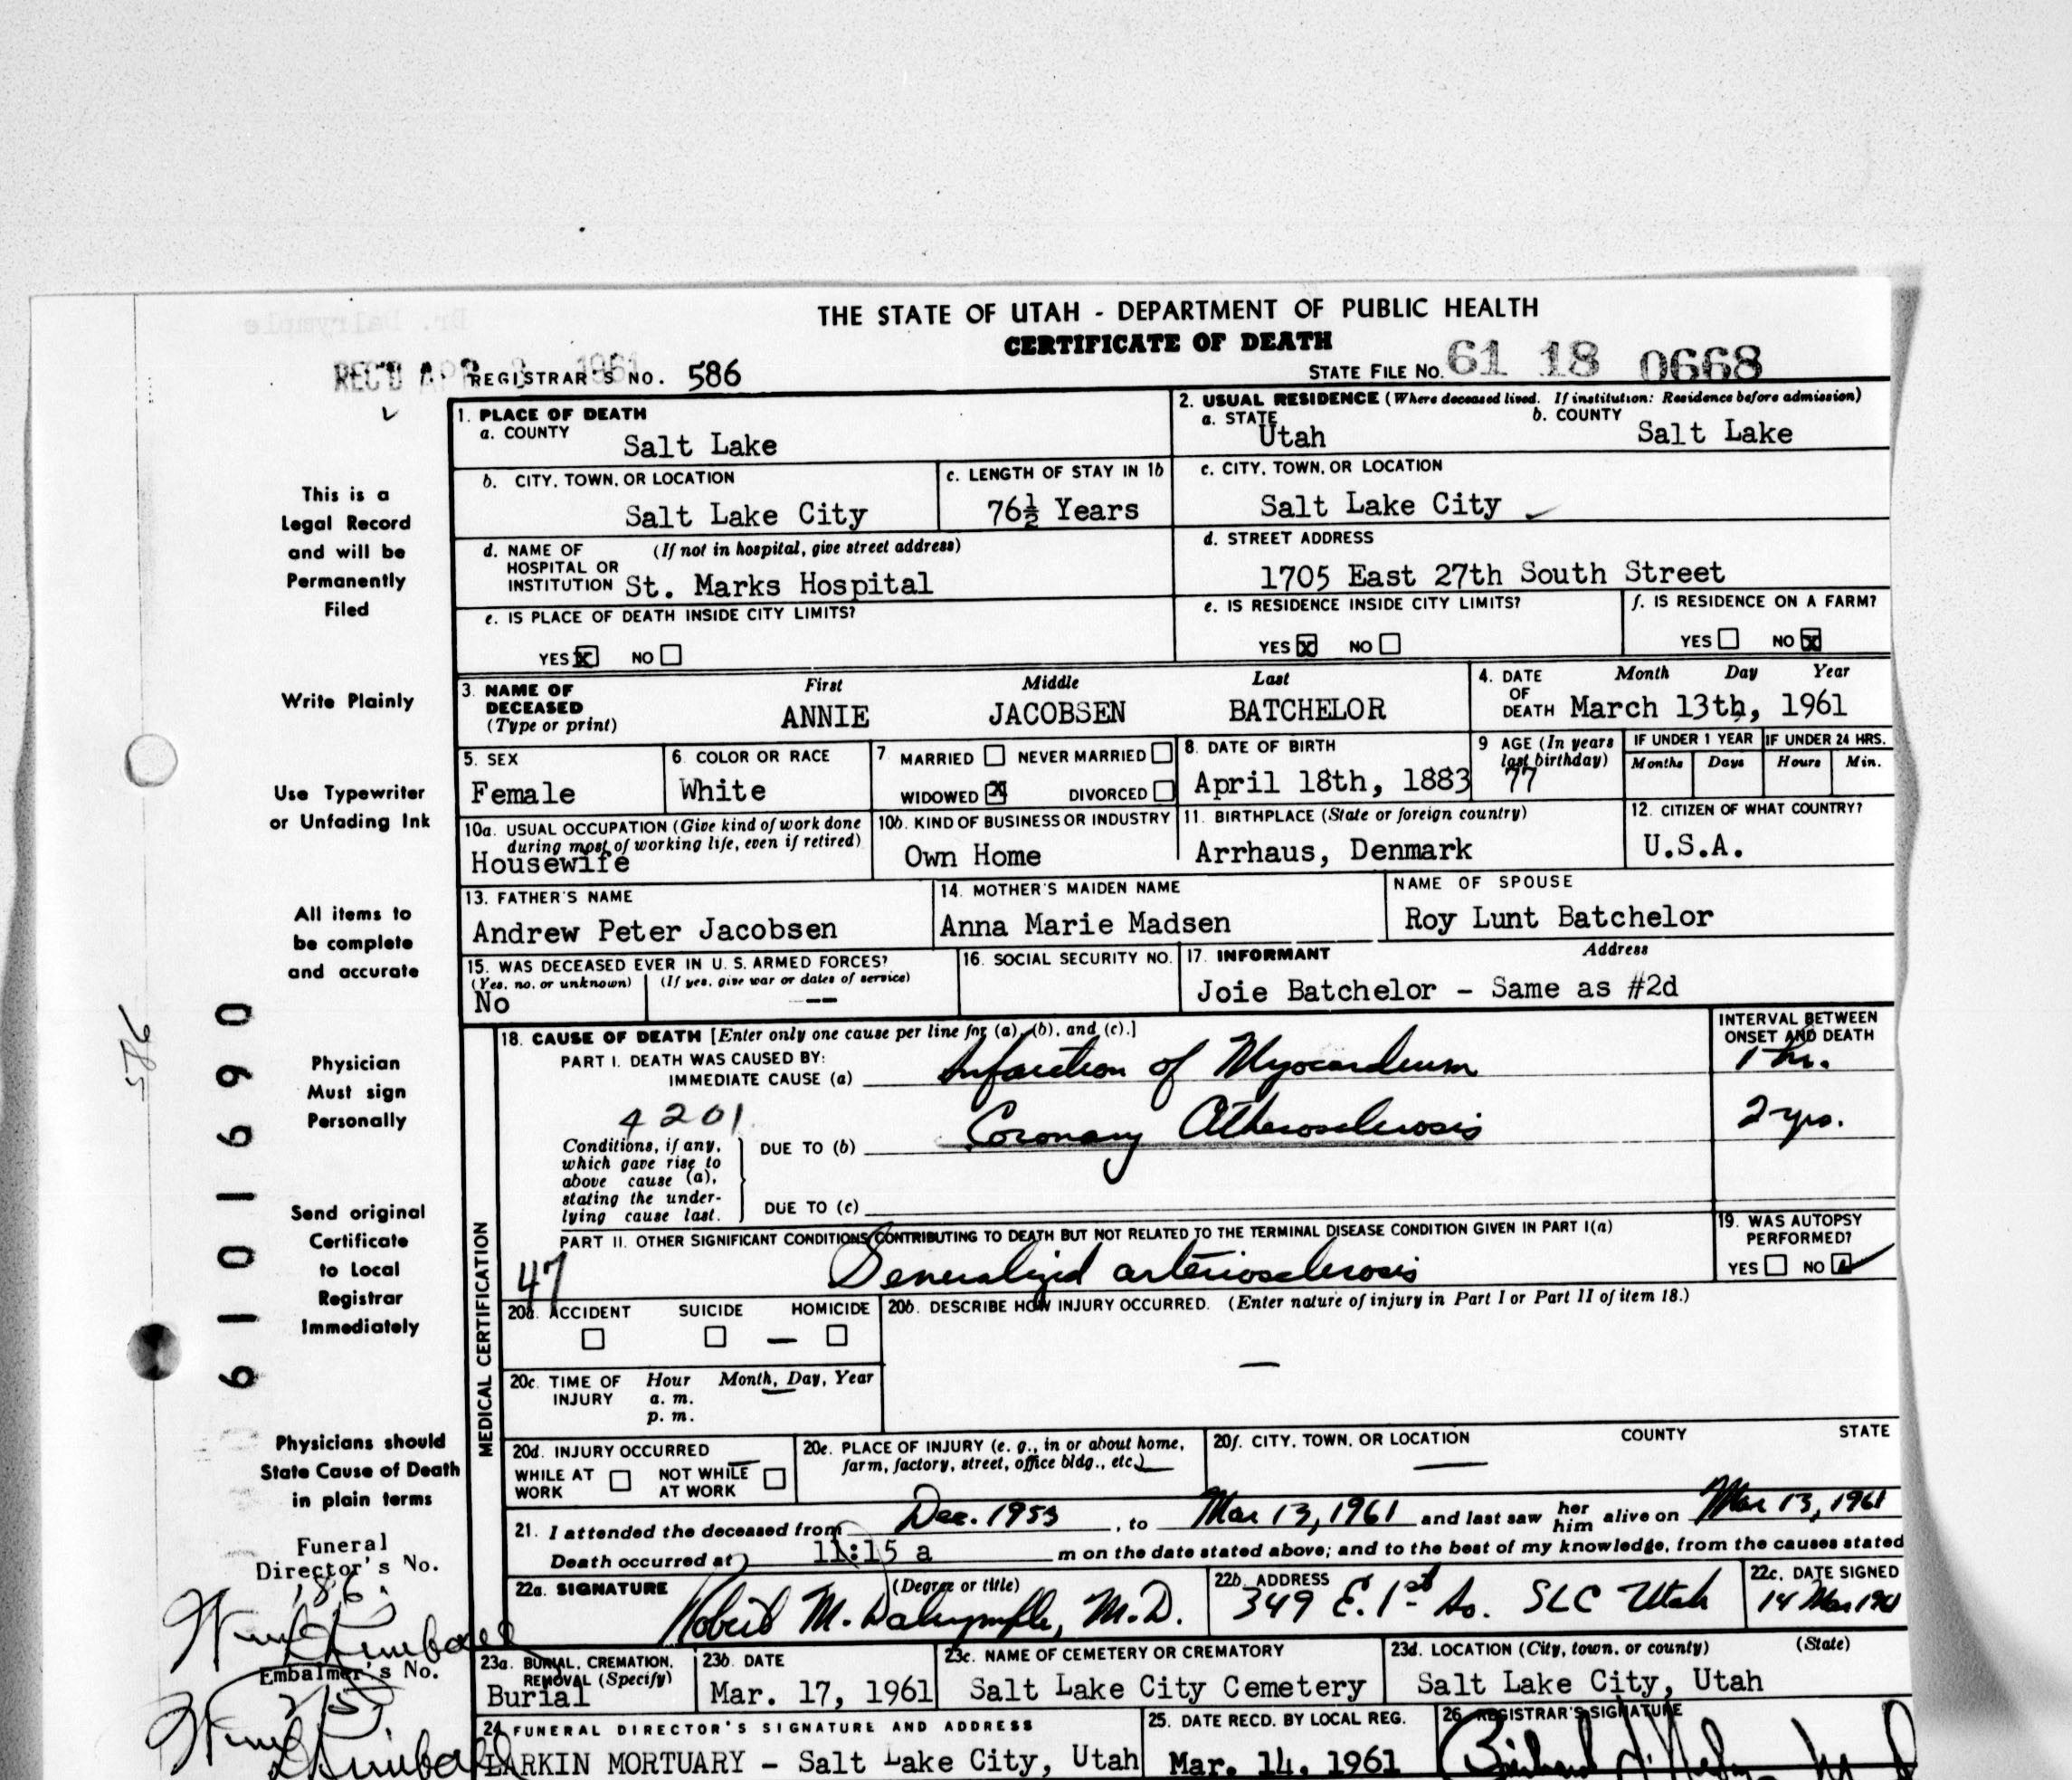 THE STATE OF UTAH - DEPARTMENT OF PUBLIC HEALTH
CERTIFICATE OF DEATH
REC'D 1961 REGISTRAR'S NO. 586 STATE FILE NO. 61 18 0668
1. PLACE OF DEATH
a. COUNTY Salt Lake
2. USUAL RESIDENCE (Where deceased lived. If institution: Residence before admission)
a. STATE Utah b. COUNTY Salt Lake
b. CITY, TOWN, OR LOCATION Salt Lake City
c. LENGTH OF STAY IN 1b 76½ Years
c. CITY, TOWN, OR LOCATION Salt Lake City
d. NAME OF HOSPITAL OR INSTITUTION (If not in hospital, give street address) St. Marks Hospital
d. STREET ADDRESS 1705 East 27th South Street
e. IS PLACE OF DEATH INSIDE CITY LIMITS?
YES X NO
e. IS RESIDENCE INSIDE CITY LIMITS?
YES X NO
f. IS RESIDENCE ON A FARM?
YES NO X
3. NAME OF DECEASED (Type or print)
First Middle Last
ANNIE JACOBSEN BATCHELOR
4. DATE OF DEATH Month Day Year
March 13th, 1961
5. SEX Female
6. COLOR OR RACE White
7. MARRIED NEVER MARRIED
WIDOWED X DIVORCED
8. DATE OF BIRTH April 18th, 1883
9 AGE (In years last birthday) 77
IF UNDER 1 YEAR Months Days
IF UNDER 24 HRS. Hours Min.
10a. USUAL OCCUPATION (Give kind of work done during most of working life, even if retired)
Housewife
10b. KIND OF BUSINESS OR INDUSTRY
Own Home
11. BIRTHPLACE (State or foreign country)
Arrhaus, Denmark
12. CITIZEN OF WHAT COUNTRY?
U.S.A.
13. FATHER'S NAME
Andrew Peter Jacobsen
14. MOTHER'S MAIDEN NAME
Anna Marie Madsen
NAME OF SPOUSE
Roy Lunt Batchelor
15. WAS DECEASED EVER IN U. S. ARMED FORCES?
(Yes, no, or unknown) (If yes, give war or dates of service)
No --
16. SOCIAL SECURITY NO.
17. INFORMANT Address
Joie Batchelor - Same as #2d
MEDICAL CERTIFICATION
18. CAUSE OF DEATH [Enter only one cause per line for (a), (b), and (c).]
INTERVAL BETWEEN ONSET AND DEATH
PART I. DEATH WAS CAUSED BY:
IMMEDIATE CAUSE (a) Infarction of Myocardium 1 hr.
4201
Conditions, if any, which gave rise to above cause (a), stating the underlying cause last.
DUE TO (b) Coronary Atherosclerosis 2 yrs.
DUE TO (c)
PART II. OTHER SIGNIFICANT CONDITIONS CONTRIBUTING TO DEATH BUT NOT RELATED TO THE TERMINAL DISEASE CONDITION GIVEN IN PART I(a)
47 Generalized arteriosclerosis
19. WAS AUTOPSY PERFORMED?
YES NO
20a. ACCIDENT SUICIDE HOMICIDE
20b. DESCRIBE HOW INJURY OCCURRED. (Enter nature of injury in Part I or Part II of item 18.)
20c. TIME OF INJURY Hour Month, Day, Year
a. m.
p. m.
20d. INJURY OCCURRED
WHILE AT WORK NOT WHILE AT WORK
20e. PLACE OF INJURY (e. g., in or about home, farm, factory, street, office bldg., etc.)
20f. CITY, TOWN, OR LOCATION COUNTY STATE
21. I attended the deceased from Dec. 1953, to Mar 13, 1961 and last saw her him alive on Mar 13, 1961
Death occurred at 11:15 a m on the date stated above; and to the best of my knowledge, from the causes stated
22a. SIGNATURE (Degree or title)
Robert M. Dalrymple, M.D.
22b. ADDRESS
349 E. 1st So. SLC Utah
22c. DATE SIGNED
14 Mar 1961
23a. BURIAL, CREMATION, REMOVAL (Specify)
Burial
23b. DATE
Mar. 17, 1961
23c. NAME OF CEMETERY OR CREMATORY
Salt Lake City Cemetery
23d. LOCATION (City, town, or county) (State)
Salt Lake City, Utah
24 FUNERAL DIRECTOR'S SIGNATURE AND ADDRESS
LARKIN MORTUARY - Salt Lake City, Utah
25. DATE RECD. BY LOCAL REG.
Mar. 14, 1961
26. REGISTRAR'S SIGNATURE
This is a
Legal Record
and will be
Permanently
Filed
Write Plainly
Use Typewriter
or Unfading Ink
All items to
be complete
and accurate
Physician
Must sign
Personally
Send original
Certificate
to Local
Registrar
Immediately
Physicians should
State Cause of Death
in plain terms
Funeral
Director's No.
186
Embalmer's No.
586
6101690
Dr. Dalrymple